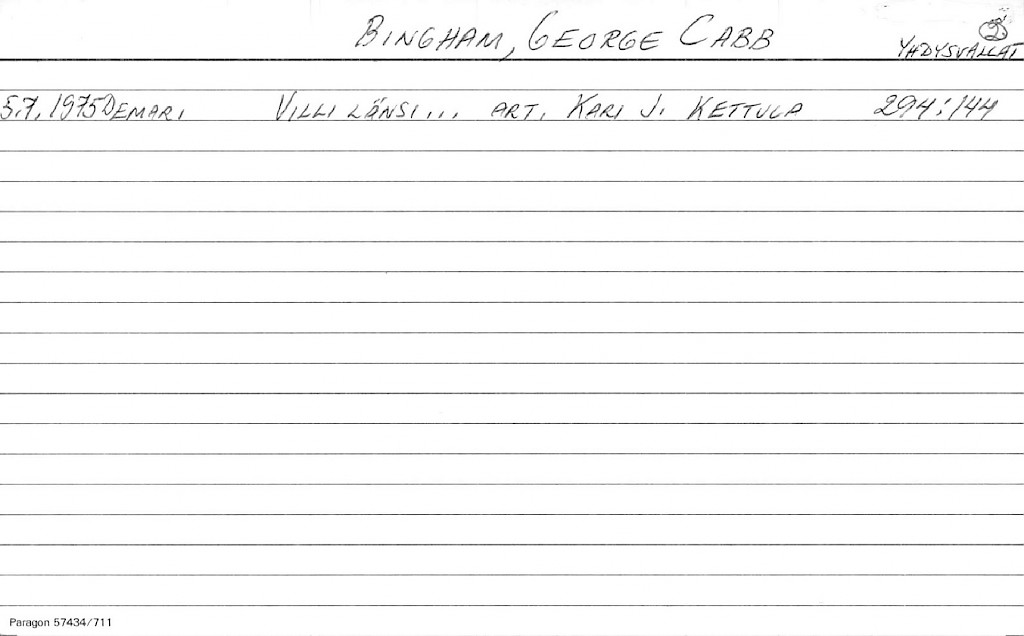 BINGHAM, GEORGE CABB
YHDYSVALLAT
5.7.1975 DEMARI VILLI LÄNSI... ART. KARI J. KETTULA 294:144
Paragon 57434/711